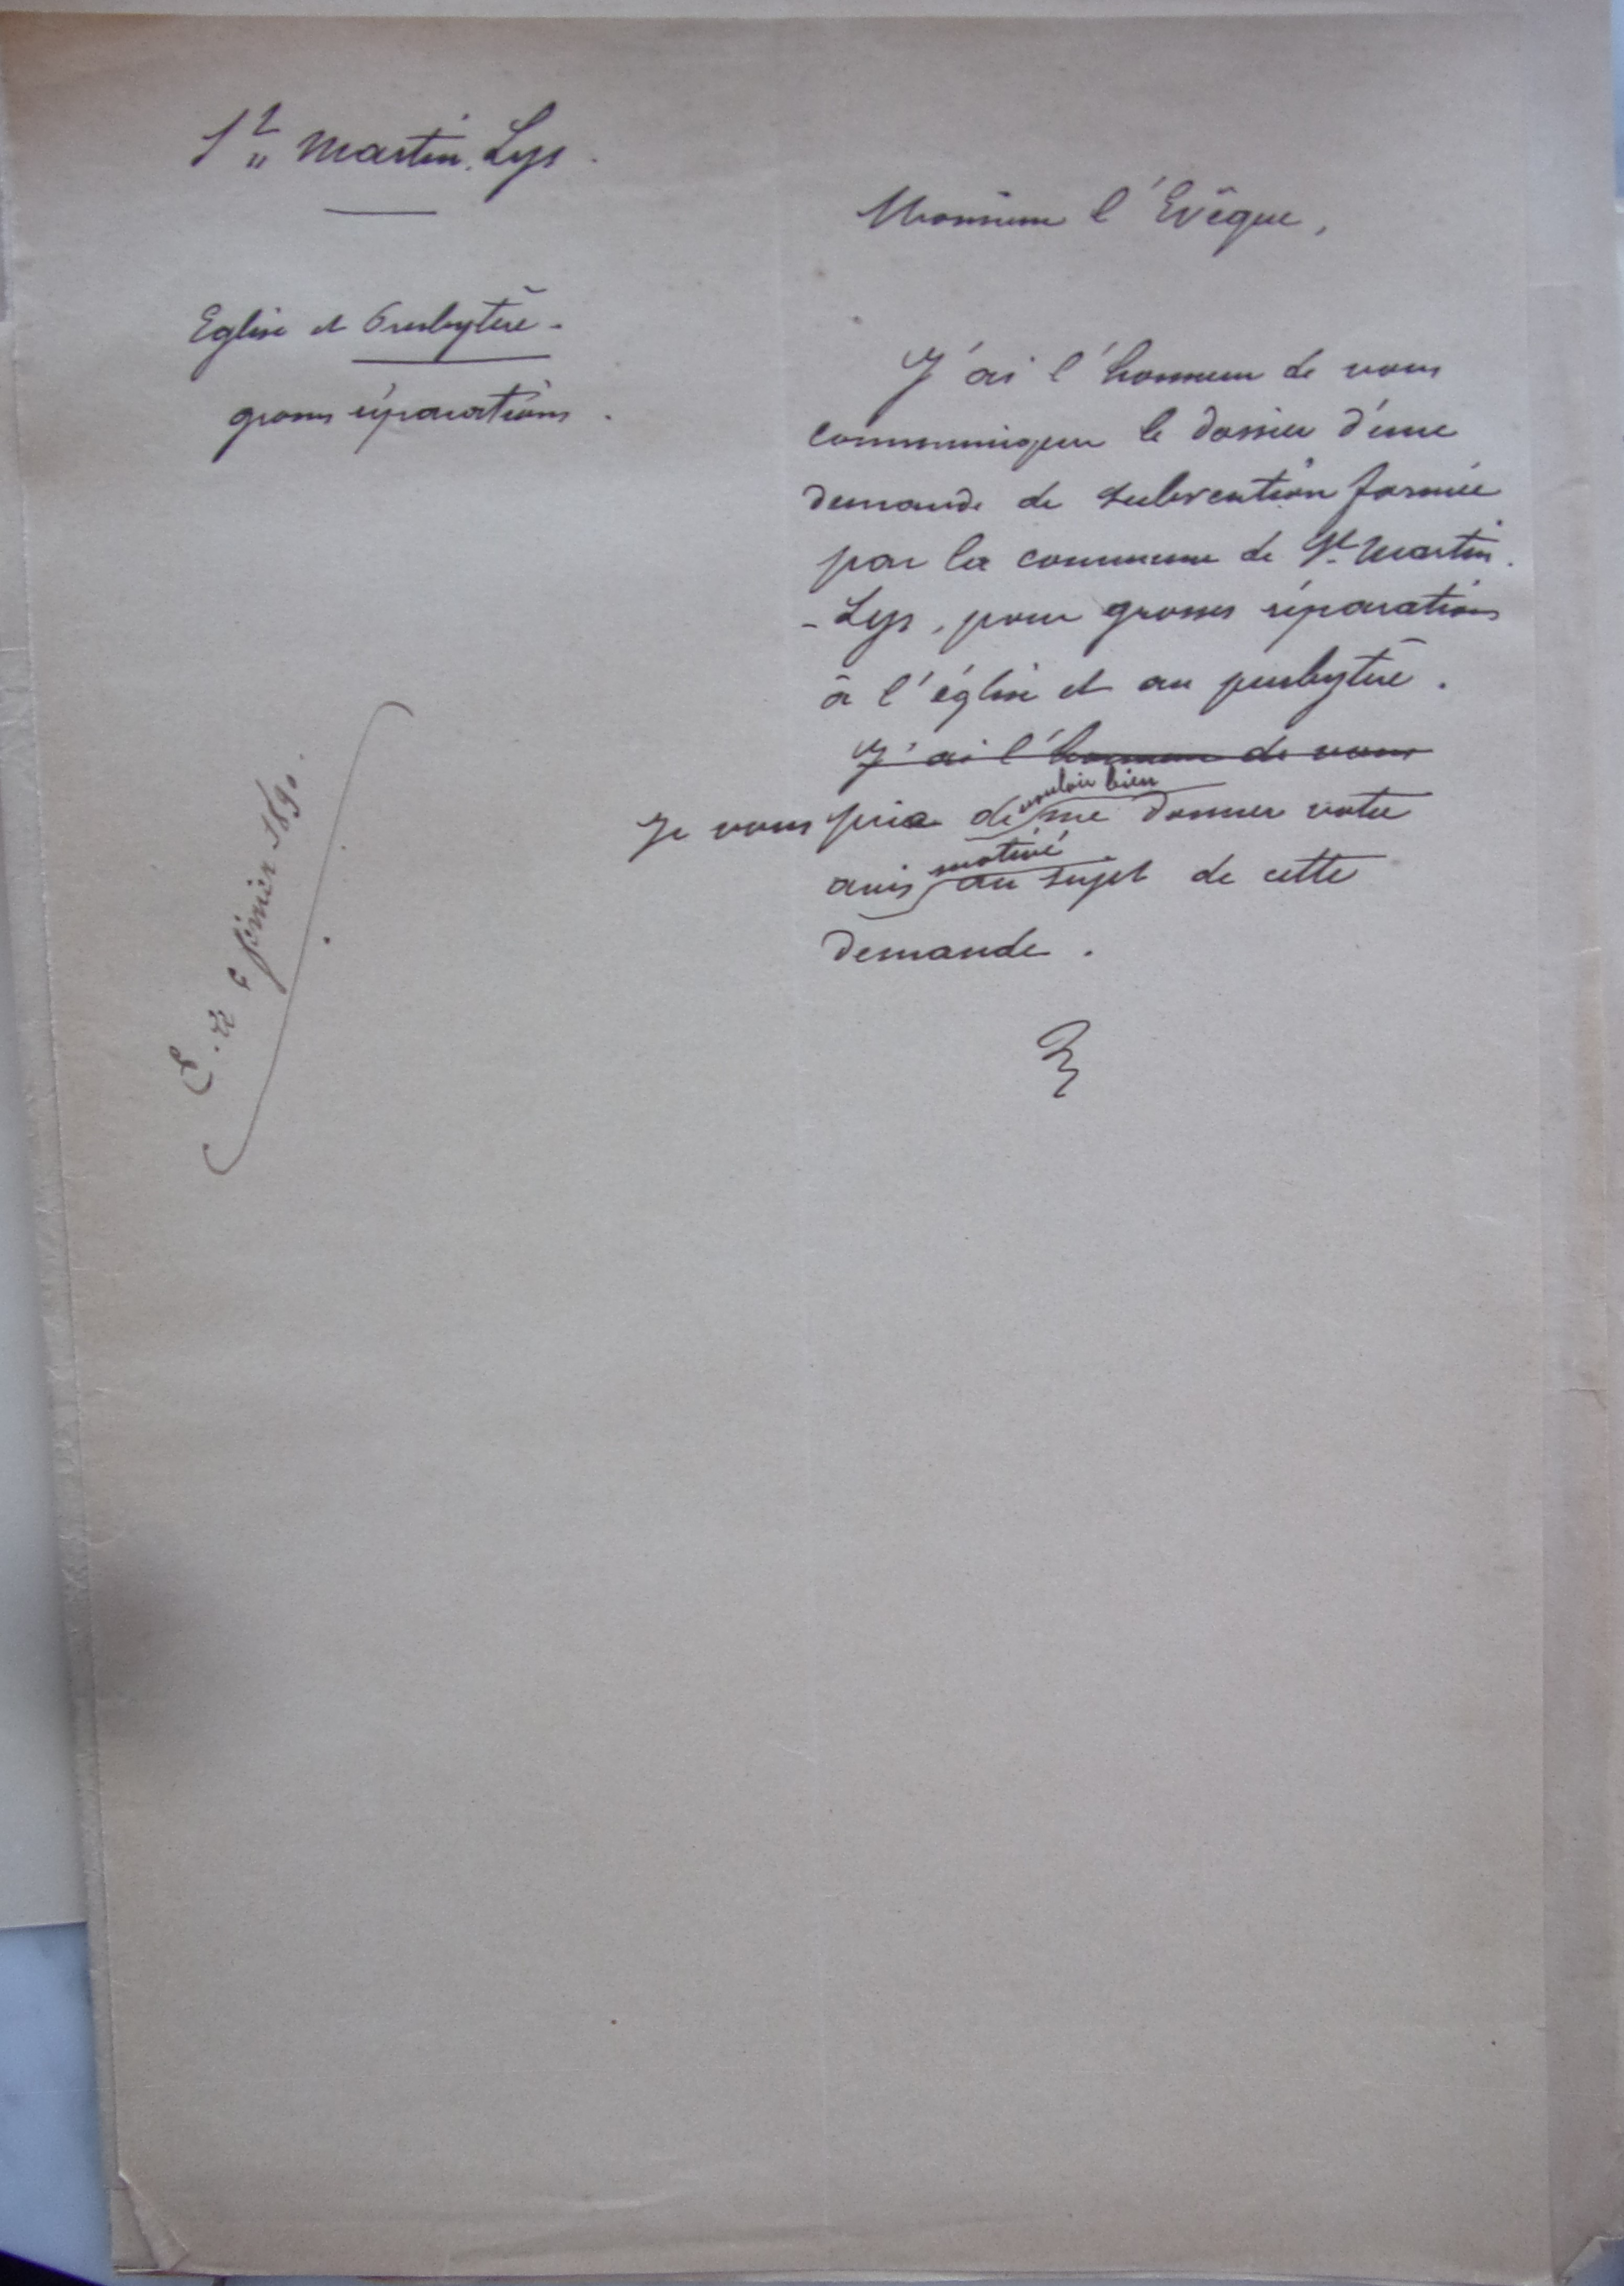 St Martin Lys.
Eglise et Presbytère.
grosses réparations.
Monsieur l'Evêque,
J'ai l'honneur de vous
communiquer le dossier d'une
demande de subvention formée
par la commune de St Martin
-Lys, pour grosses réparations
à l'église et au presbytère.
J'ai l'honneur de vous
vouloir bien
Je vous prie de me donner votre
motivé
avis au sujet de cette
demande.
février 1890.